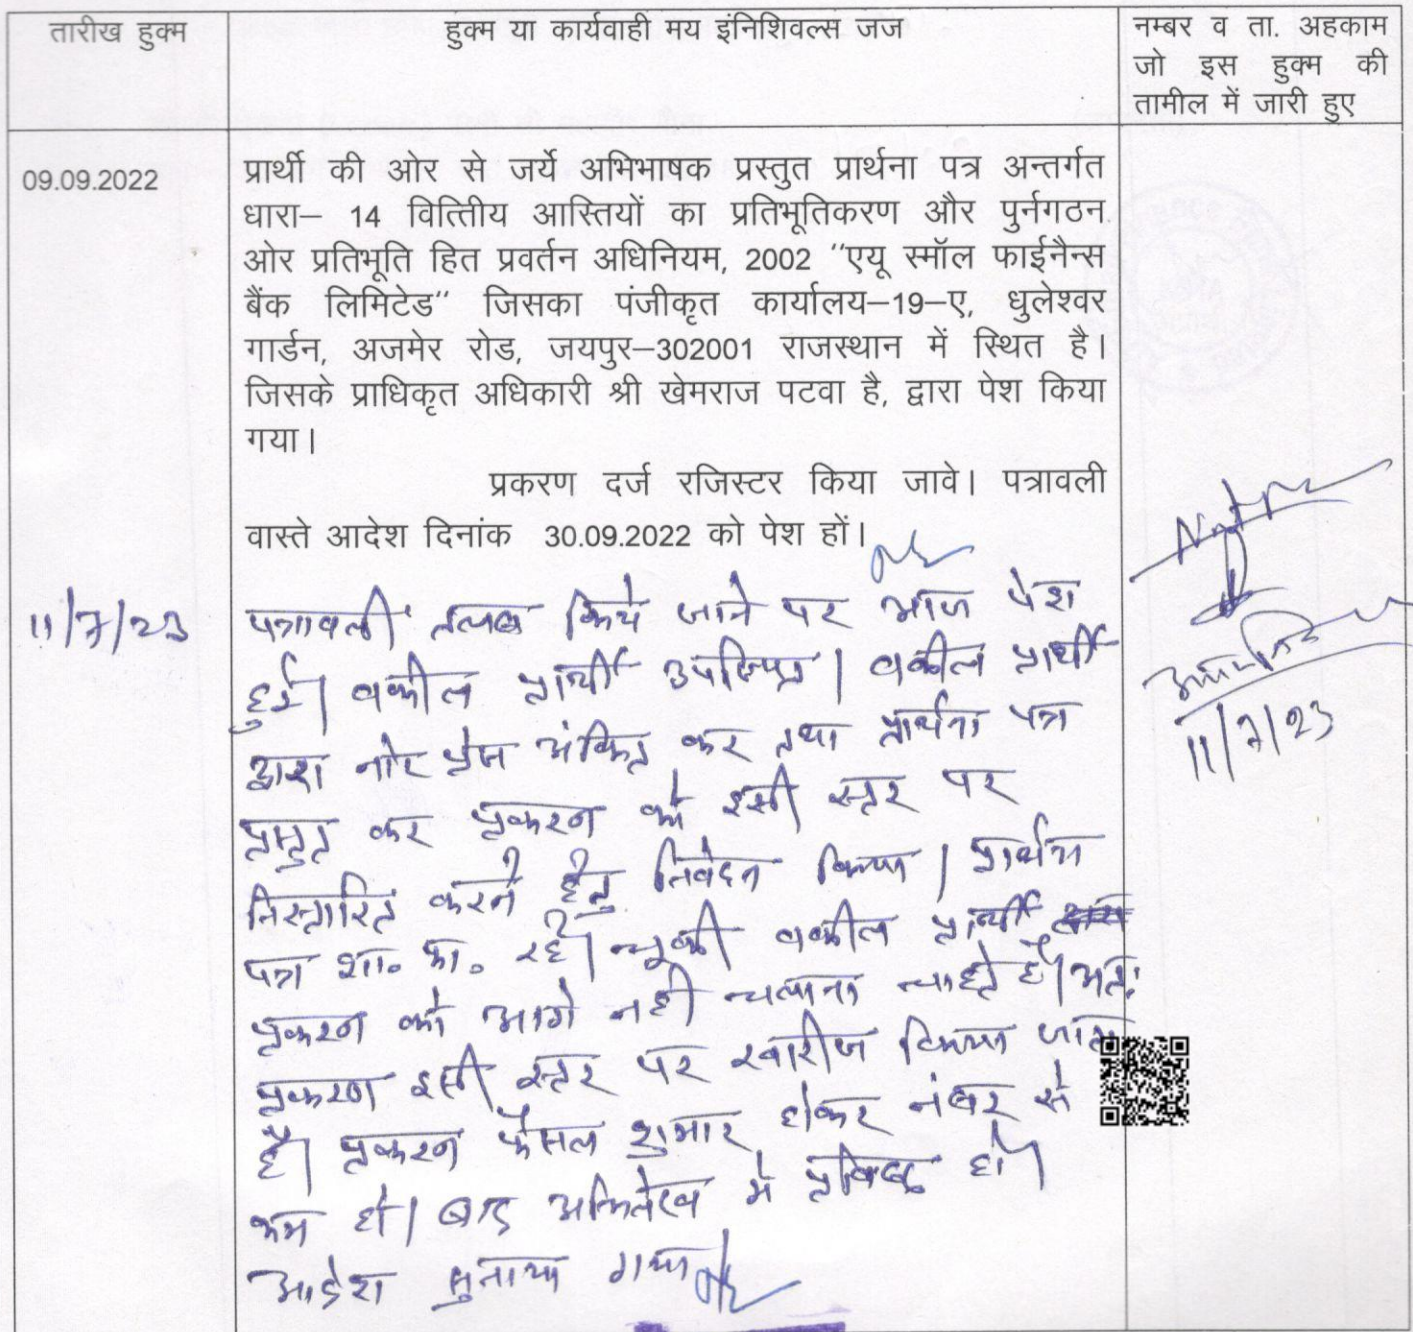 तारीख हुक्म
हुंक्म या कार्यवाही मय इंनिशिवल्स जज
नम्बर व ता. अहकाम
जो इस हुक्म की
तामील में जारी हुए
09.09.2022
प्रार्थी की ओर से जर्ये अभिभाषक प्रस्तुत प्रार्थना पत्र अन्तर्गत
धारा– 14 वित्तिीय आस्तियों का प्रतिभूतिकरण और पुर्नगठन
ओर प्रतिभूति हित प्रवर्तन अधिनियम, 2002 "एयू स्मॉल फाईनैन्स
बैंक लिमिटेड" जिसका पंजीकृत कार्यालय–19–ए, धुलेश्वर
गार्डन, अजमेर रोड, जयपुर–302001 राजस्थान में स्थित है।
जिसके प्राधिकृत अधिकारी श्री खेमराज पटवा है, द्वारा पेश किया
गया।
प्रकरण दर्ज रजिस्टर किया जावे। पत्रावली
वास्ते आदेश दिनांक 30.09.2022 को पेश हों।
11/7/23
पत्रावली तलब किये जाने पर आज पेश
हुई। वकील प्रार्थी उपस्थित। वकील प्रार्थी
द्वारा नोट प्रेस अंकित कर तथा प्रार्थना पत्र
प्रस्तुत कर प्रकरन को इसी स्तर पर
निस्तारित करने हेतु निवेदन किया। प्रार्थना
पत्र शा. का. रहे। चूकी वकील प्रार्थी
प्रकरन को आगे नही चलाना चाहते है। अतः
प्रकरण इसी स्तर पर खारीज किया जाता
है। प्रकरन फैसल शुमार होकर नंबर से
कम हो। बाद अभिलेख मे प्रविष्ट हो।
आदेश सुनाया गया
11/7/23